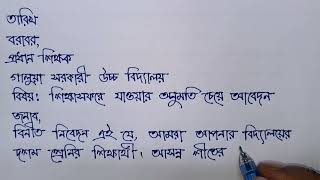 তারিখ
বরাবর,
প্রধান শিক্ষক
গানুয়া সরকারী উচ্চ বিদ্যালয়
বিষয়: শিক্ষাসফরে যাওয়ার অনুমতি চেয়ে আবেদন
জনাব,
বিনীত নিবেদন এই যে, আমরা আপনার বিদ্যালয়ের
দশম শ্রেনির শিক্ষার্থী। আসন্ন শীতের